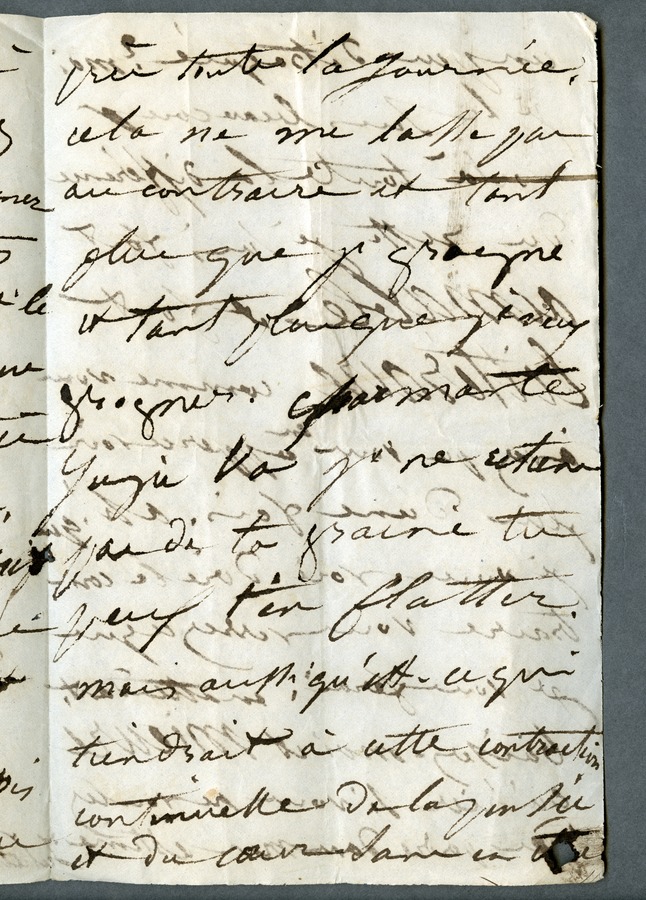 toute la journée.
cela ne me lasse pas
au contraire et tant
plus que j' grogne
et tant plus que j'veux
grogner. charmante
Juju va je ne
pas de ta graine tu
peux t'en flatter.
mais aussi qu'est-ce qui
tiendrait à cette contraction
continuelle de la pensée
et du cœur dans